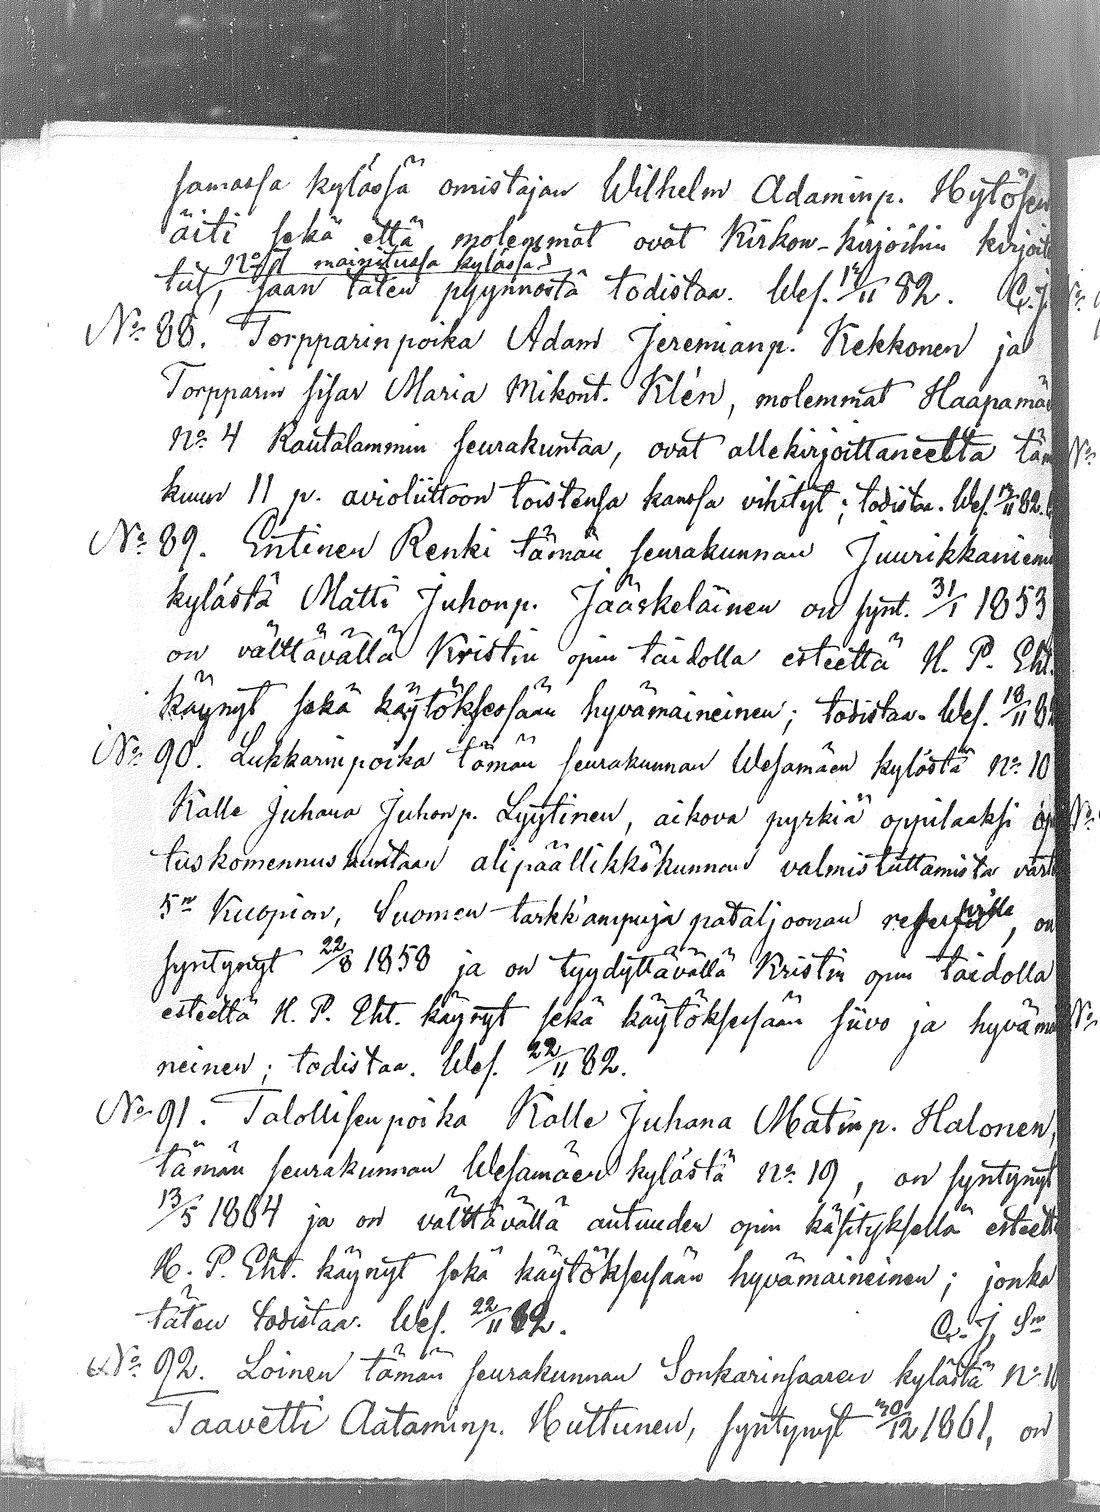 samassa kylässä omistajan Wilhelm Adaminp. Hytösen
äiti sekä että molemmat ovat Kirkon-kirjoihin kirjoite
mainitussa kylässä
tut, saan täten pyynnöstä todistaa. Wes. 17/11 82. C. J.
No 88. Torpparinpoika Adam Jeremianp. Kekkonen ja
Torpparin sisar Maria Mikont. Klén, molemmat Haapamäe
no 4 Rautalammin seurakuntaa, ovat allekirjoittaneelta täm
kuun 11 p. avioliittoon toistensa kanssa vihityt; todistaa. Wes. 17/11 82.
No 89. Entinen Renki tämän seurakunnan Juurikkaniemi
kylästä Matti Juhonp. Jääskeläinen on synt. 31/1 1853
on välttävällä Kristin opin taidolla esteettä H. P. Eht.
käynyt sekä käytöksessään hyvämaineinen; todistaa. Wes. 18/11 82
No 90. Lukkarinpoika tämän seurakunnan Wesamäen kylästä no 10
Kalle Juhana Juhonp. Lyytinen, aikova pyrkiä oppilaaksi op
tuskomennuskuntaan alipäällikkökunnan valmistuttamista vart
5n Kuopion, Suomen tarkk'ampuja pataljoonan reserville, on
syntynyt 22/8 1858 ja on tyydyttävällä Kristin opin taidolla
esteettä H. P. Eht. käynyt sekä käytöksessään siivo ja hyvämai
neinen; todistaa. Wes. 22/11 82.
No 91. Talollisenpoika Kalle Juhana Matinp. Halonen,
tämän seurakunnan Wesamäen kylästä no 19, on syntynyt
13/5 1864 ja on välttävällä autuuden opin käsityksellä esteettä
H. P. Eht. käynyt sekä käytöksessään hyvämaineinen; jonka
täten todistaa. Wes. 22/11 82. C. J. Sm
No 92. Loinen tämän seurakunnan Sonkarinsaaren kylästä no 1
Taavetti Aataminp. Huttunen, syntynyt 30/12 1861, on